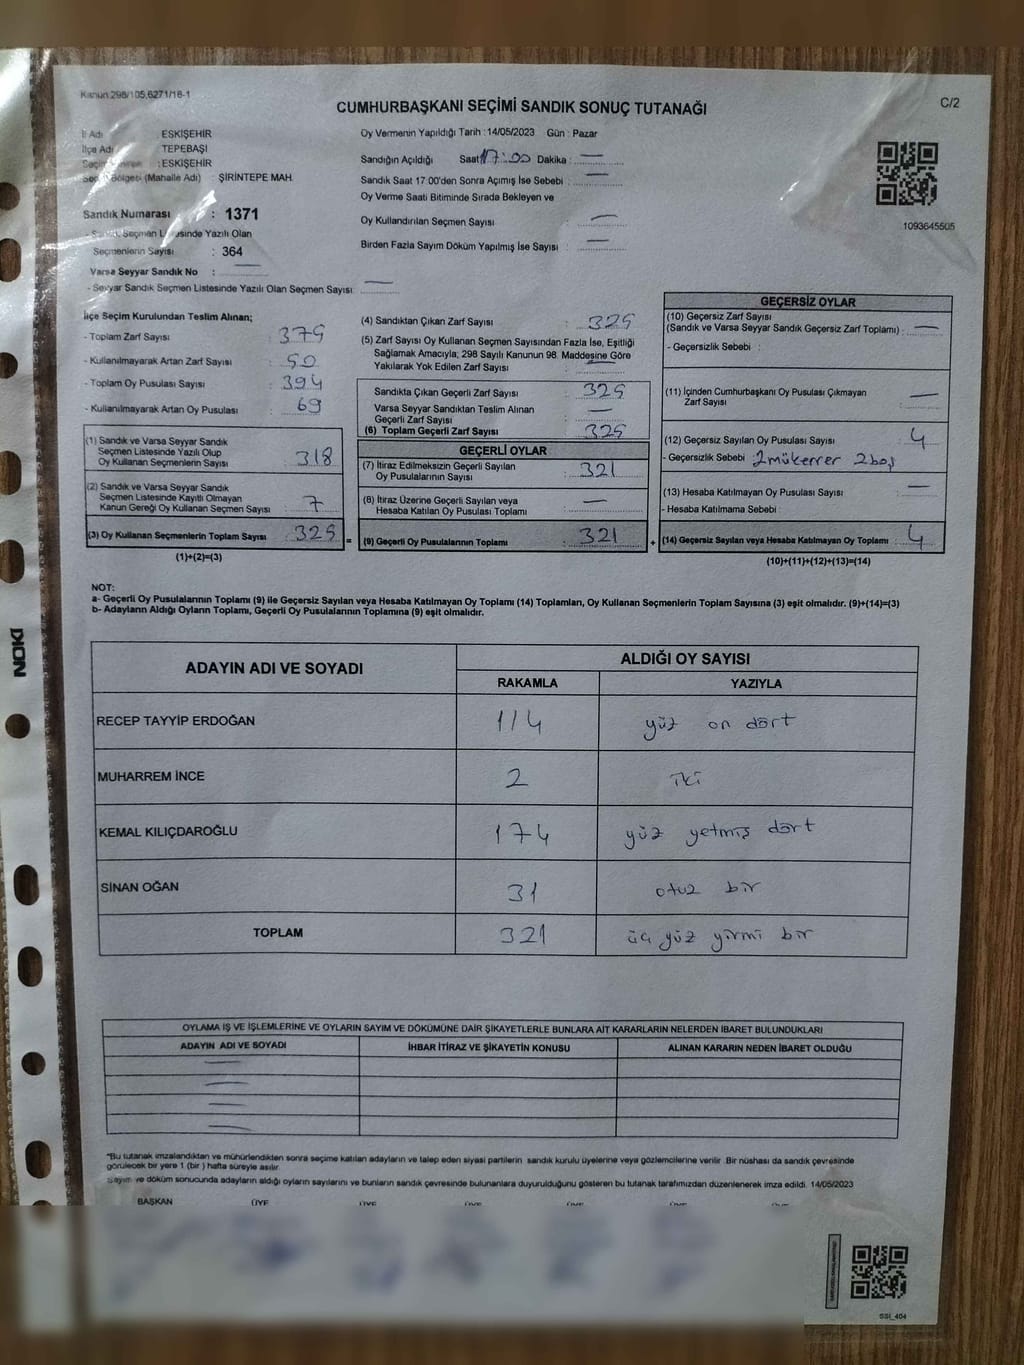 Kanun 298/105,6271/16-1
C/2
CUMHURBAŞKANI SEÇİMİ SANDIK SONUÇ TUTANAĞI
İl Adı : ESKİŞEHİR
İlçe Adı : TEPEBAŞI
: ESKİŞEHİR
Bölgesi (Mahalle Adı) : ŞİRİNTEPE MAH.
Sandık Numarası : 1371
- Seçmen Listesinde Yazılı Olan
Seçmenlerin Sayısı : 364
Varsa Seyyar Sandık No : —
- Seyyar Sandık Seçmen Listesinde Yazılı Olan Seçmen Sayısı —
Oy Vermenin Yapıldığı Tarih : 14/05/2023 Gün : Pazar
Sandığın Açıldığı Saat 17:00 Dakika : —
Sandık Saat 17.00'den Sonra Açımış İse Sebebi : —
Oy Verme Saati Bitiminde Sırada Bekleyen ve
Oy Kullandırılan Seçmen Sayısı : —
Birden Fazla Sayım Döküm Yapılmış İse Sayısı : —
1093645505
İlçe Seçim Kurulundan Teslim Alınan;
- Toplam Zarf Sayısı : 375
- Kullanılmayarak Artan Zarf Sayısı : 50
- Toplam Oy Pusulası Sayısı : 394
- Kullanılmayarak Artan Oy Pusulası : 69
(1) Sandık ve Varsa Seyyar Sandık
Seçmen Listesinde Yazılı Olup
Oy Kullanan Seçmenlerin Sayısı : 318
(2) Sandık ve Varsa Seyyar Sandık
Seçmen Listesinde Kayıtlı Olmayan
Kanun Gereği Oy Kullanan Seçmen Sayısı : 7
(3) Oy Kullanan Seçmenlerin Toplam Sayısı : 325
(1)+(2)=(3)
(4) Sandıktan Çıkan Zarf Sayısı : 325
(5) Zarf Sayısı Oy Kullanan Seçmen Sayısından Fazla İse, Eşitliği
Sağlamak Amacıyla; 298 Sayılı Kanunun 98. Maddesine Göre
Yakılarak Yok Edilen Zarf Sayısı : —
Sandıkta Çıkan Geçerli Zarf Sayısı : 325
Varsa Seyyar Sandıktan Teslim Alınan
Geçerli Zarf Sayısı : —
(6) Toplam Geçerli Zarf Sayısı : 325
GEÇERLİ OYLAR
(7) İtiraz Edilmeksizin Geçerli Sayılan
Oy Pusulalarının Sayısı : 321
(8) İtiraz Üzerine Geçerli Sayılan veya
Hesaba Katılan Oy Pusulası Toplamı : —
= (9) Geçerli Oy Pusulalarının Toplamı : 321 +
GEÇERSİZ OYLAR
(10) Geçersiz Zarf Sayısı
(Sandık ve Varsa Seyyar Sandık Geçersiz Zarf Toplamı) : —
- Geçersizlik Sebebi :
(11) İçinden Cumhurbaşkanı Oy Pusulası Çıkmayan
Zarf Sayısı : —
(12) Geçersiz Sayılan Oy Pusulası Sayısı : 4
- Geçersizlik Sebebi : 2 mükerrer 2 boş
(13) Hesaba Katılmayan Oy Pusulası Sayısı : —
- Hesaba Katılmama Sebebi :
(14) Geçersiz Sayılan veya Hesaba Katılmayan Oy Toplamı : 4
(10)+(11)+(12)+(13)=(14)
NOT:
a- Geçerli Oy Pusulalarının Toplamı (9) ile Geçersiz Sayılan veya Hesaba Katılmayan Oy Toplamı (14) Toplamları, Oy Kullanan Seçmenlerin Toplam Sayısına (3) eşit olmalıdır. (9)+(14)=(3)
b- Adayların Aldığı Oyların Toplamı, Geçerli Oy Pusulalarının Toplamına (9) eşit olmalıdır.
ADAYIN ADI VE SOYADI ALDIĞI OY SAYISI
RAKAMLA YAZIYLA
RECEP TAYYİP ERDOĞAN 114 yüz on dört
MUHARREM İNCE 2 iki
KEMAL KILIÇDAROĞLU 174 yüz yetmiş dört
SİNAN OĞAN 31 otuz bir
TOPLAM 321 üç yüz yirmi bir
OYLAMA İŞ VE İŞLEMLERİNE VE OYLARIN SAYIM VE DÖKÜMÜNE DAİR ŞİKAYETLERLE BUNLARA AİT KARARLARIN NELERDEN İBARET BULUNDUKLARI
ADAYIN ADI VE SOYADI İHBAR İTİRAZ VE ŞİKAYETİN KONUSU ALINAN KARARIN NEDEN İBARET OLDUĞU
—
—
—
—
*Bu tutanak imzalandıktan ve mühürlendikten sonra seçime katılan adayların ve talep eden siyasi partilerin sandık kurulu üyelerine veya gözlemcilerine verilir .Bir nüshası da sandık çevresinde
görülecek bir yere 1 (bir ) hafta süreyle asılır.
Sayım ve döküm sonucunda adayların aldığı oyların sayılarını ve bunların sandık çevresinde bulunanlara duyurulduğunu gösteren bu tutanak tarafımızdan düzenlenerek imza edildi. 14/05/2023
BAŞKAN ÜYE ÜYE ÜYE ÜYE ÜYE ÜYE
SSI_404
NOKI